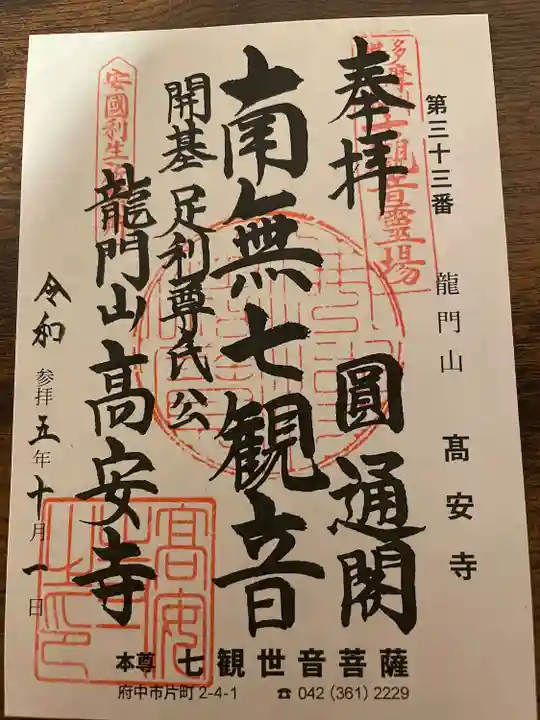 第三十三番 龍門山 髙安寺
多摩川三十三観音霊場
奉拝 圓通閣
南無七観音
開基 足利尊氏公
安國利生
龍門山高安寺
令和 参拝 五年十月一日
高安
本尊 七観世音菩薩
府中市片町2-4-1 ☎ 042 (361) 2229